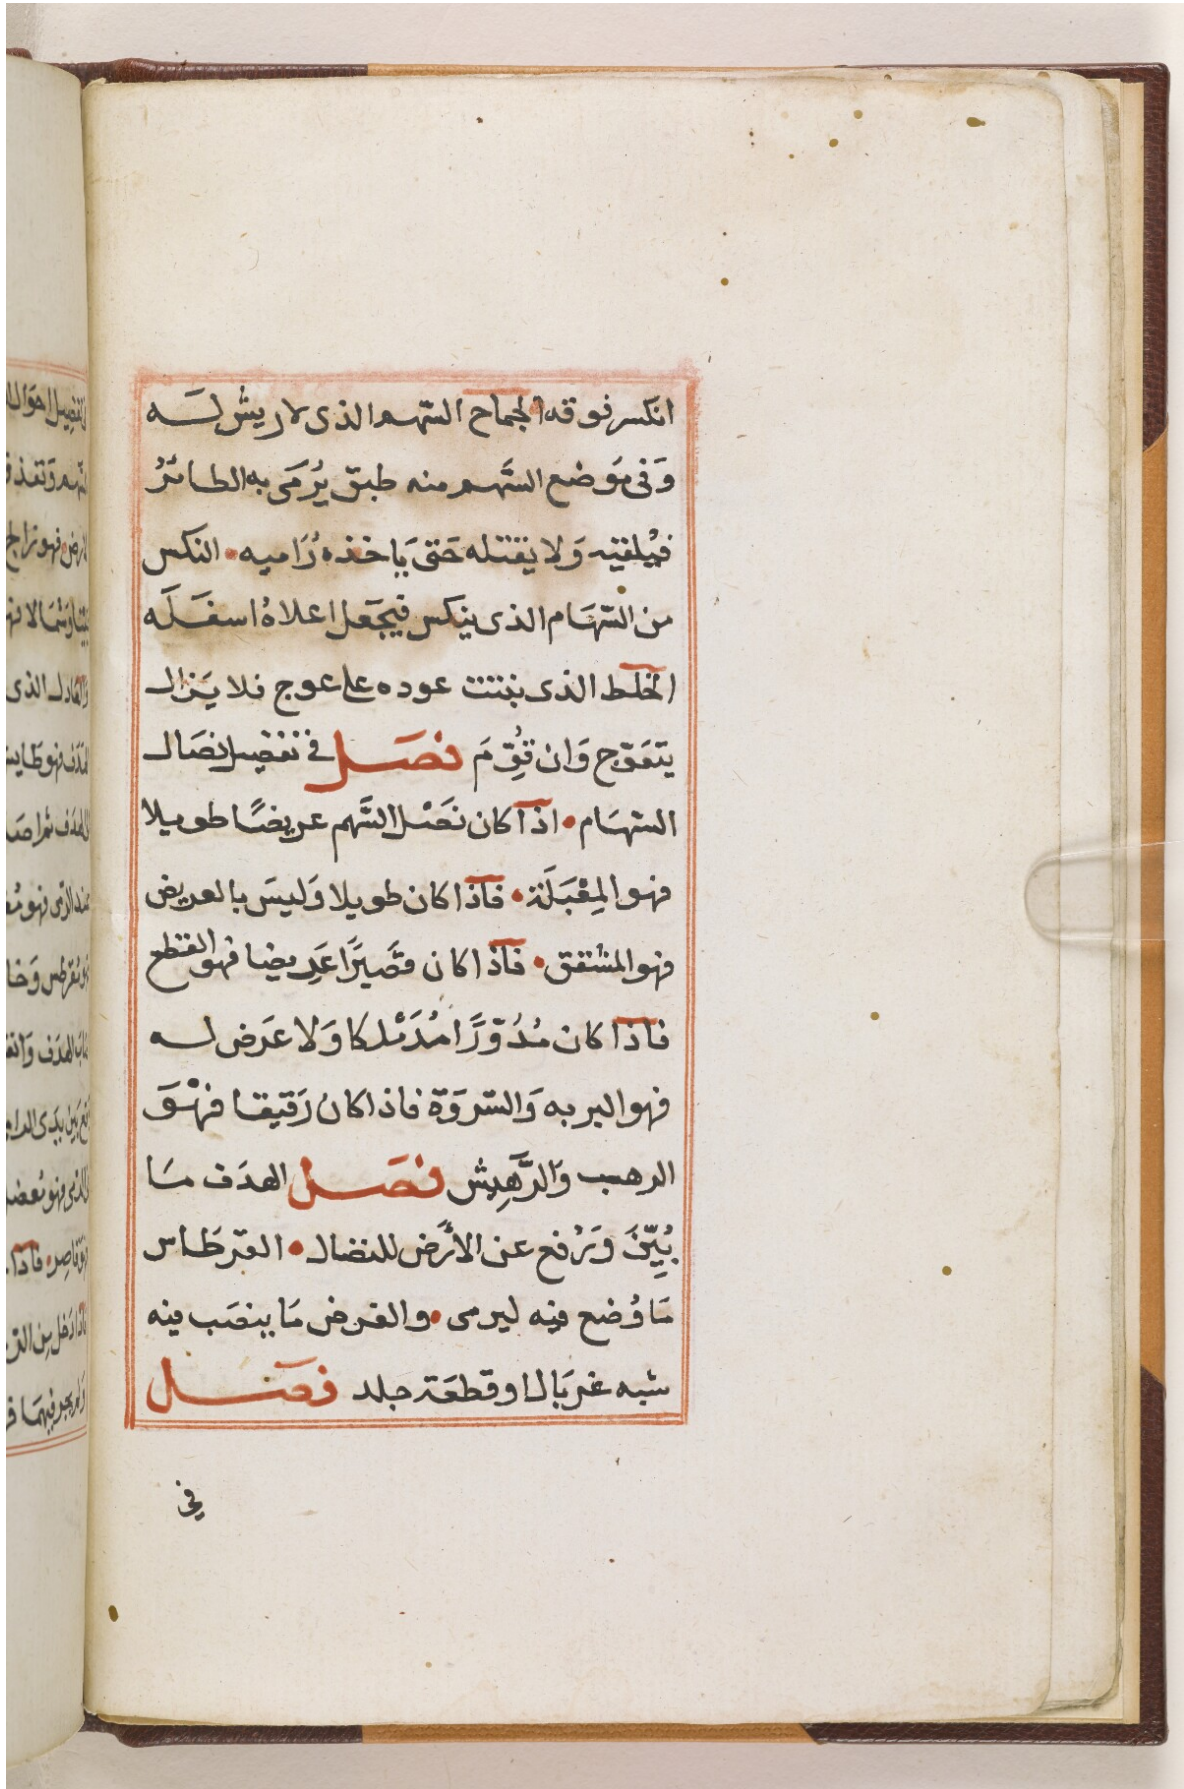 انكسر فوقه الجماح السّهم الذى لا ريش لَسه
وَفى مَوضع السَّهم منه طبق يُرمَى به الطائرُ
فيُلقيه وَلا يقتله حَتى يَاخذه رَاميه • النكس
من السّهَام الذى ينكس فيجَعل اعلاهُ اسفَلَه
الخلط الذى ينبت عوده على عوج فلا يَزال
يتعَوّج وَان قُوِّمَ فصَل فى تفصيل نصَال
السّهَام • اذا كان نَصْل السَّهم عريضًا طويلا
فهو المِعْبَلَة • فاذا كان طويلا وَليسَ بالعريض
فهو المشقق • فاذا كان قصَيرًا عَريضا فهو القطع
فاذا كان مُدُوّرًا مُدَمْلكا وَلا عَرَض له
فهو البربه وَالسّروَة فاذا كان رَقيقا فهْوَ
الرهب وَالرَّهِيش فصَل الهدَف مَا
بُيِّنَ وَرُفع عن الأرَض للنضال • القرطَاس
مَا وُضع فيه ليرمى • والغرض مَا ينصَب فيه
شبه غربَال او قطعَة جلد فصَل
في